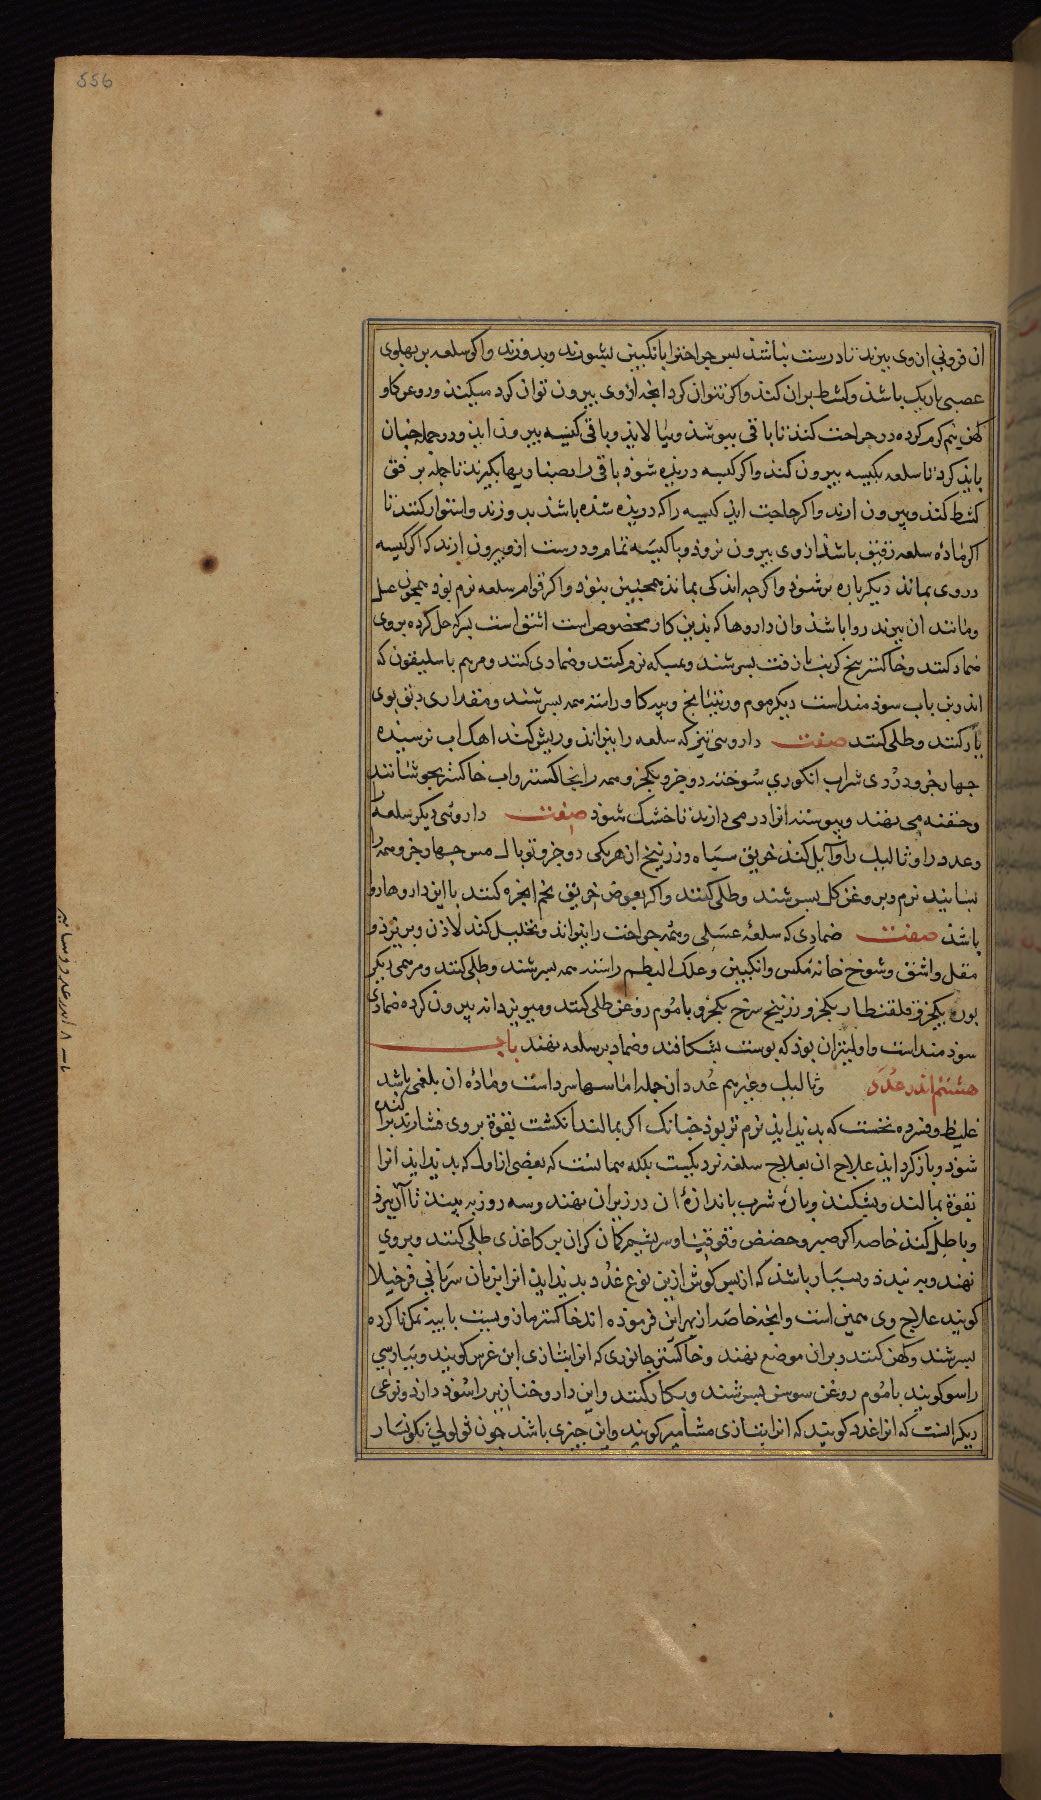 556
ان فزونی ازوی ببرند تا درست نباشد پس جراحترا بانکبین بشویند و بدوزند واکر سلعه بر پهلوی
عصبی باریک باشد و کشط بران کنند واکر نتوان کرد انجه ازوی بیرون توان کرد میکنند وروغن کاو
کهن نیم کرم کرده در جراحت کنند تا باقی ببوشد و بپالاید و باقی کیسه بیرون اید ودر جمله جنان
باید کرد تا سلعه بکیسه بیرون کنند واکر کیسه دریده شود باقی را بصناریها بکیرند تا جمله برفق
کشط کنند وبیرون ارند واکر حاجت اید کیسه را که دریده شده باشد بدوزند واستوار کنند تا
اکر ماده سلعه رقیق باشد ازوی بیرون نرود وبا کیسه تمام ودرست ازو بیرون ارند که اکر کیسه
دروی بماند دیکرباره برشود واکر جه اندکی بماند همجنین بود واکر قوام سلعه نرم بود همجون عسل
ومانند ان ببرند روا باشد وان داروها که بدین کار مخصوص است اشق است بسرکه حل کرده بروی
ضماد کنند وخاکستر بیخ کرنب با زفت بسرشند وبسیکه نرم کنند وضمادی کنند ومرهم باسلیقون که
اندرین باب سودمند است دیکر موم وریتیانج وپیه کاو راستا همه بسرشند ومقداری دبق بوی
یار کنند وطلی کنند صفت داروی تیز که سلعه را بپزاند وریش کند اهک اب نرسیده
جهار جزو دردی شراب انکوری سوخته دو جزو یکجزو همه را بخاکستر واب خاکستر بجوشانند
وحقنه می نهند وپیوسته انرا درمی دارند تا خشک شود صفت داروئی دیکر سلعه را
وغدد را وثالیل را زایل کند خربق سیاه وزرنیخ از هریکی دو جزو توبال مس جهار جزو همه را
بسایند نرم وبروغن کل بسرشند وطلی کنند واکر بعوض خربق تخم انجره کنند با این داروها روا
باشد صفت ضمادی که سلعه عسلی وهمه جراحت را بپزاند وتحلیل کند لاذن وبریزد و
مقل واشق وشوخ خانه مکس وانکبین وعلک البطم راستا همه بسرشند وطلی کنند ومرهمی دیکر
بوره یکجزو قلقنطار یکجزو زرنیخ سرخ یکجزو با موم روغن طلی کنند ومیویز دانه بیرون کرده ضمادی
سودمند است واولیتر ان بود که بوست بشکافند وضماد بر سلعه نهند باب
هشتم اندر غدد وثالیل وغیرهم غدد ان جمله اماسها سرد است وماده ان بلغمی باشد
غلیظ وفسرده نخست که بدید اید نرم تر بود جنانک اکر بمالند انکشت بقوة بروی فشارند براکنده
شود وباز کرد اید علاج ان بعلاج سلعه نزدیکست بلکه همانست که بعضی از اول که بدید اید انرا
بقوة بمالند وبشکنند وپارهٔ سرب باندازهٔ ان در زبر ان نهند وسه روز به ببندند تا آن ببرد
وباطل کند خاصه اکر صبر وحضض وقوقیا وسریشم کمان کران بر کاغذی طلی کنند وبروی
نهند وببندند وبسیار باشد که از بس کوش ازین نوع غدد بدید اید انرا بزبان سریانی فرخیلا
کویند علاج وی همین است وانجه خاصه از بهر این فرموده اند خاکستر مار وبست با پیه نمک ناکرده
بسرشند وکهن کنند وبران موضع نهند وخاکستر جانوری که انرا بتازی ابن عرس کویند وبپارسی
راسو کویند با موم روغن سوسن بسرشند وبکار کنند واین دارو خنازیر را سود دارد ونوعی
دیکر است که انرا غدد کویند که انرا بتازی مسامیر کویند واین جیزی باشد جون ثولولی نکونسار